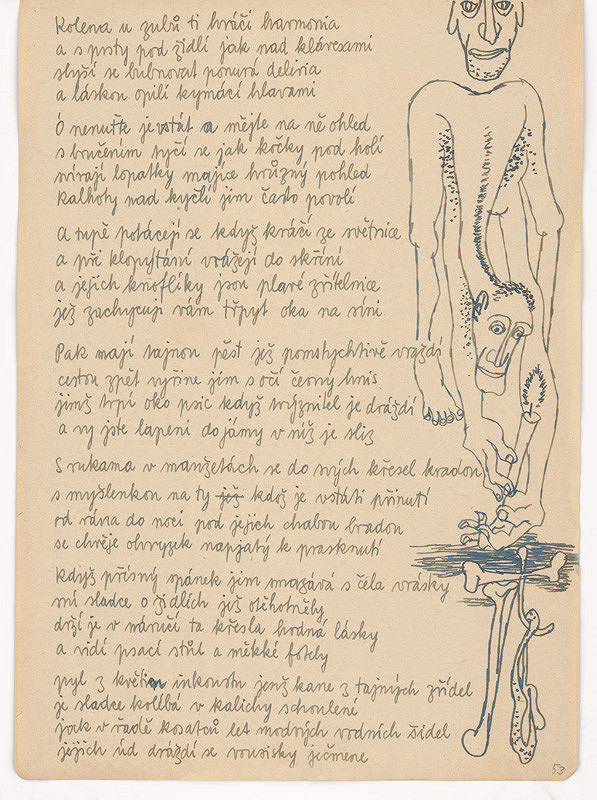 Kolena u zubů ti hráčí harmonia
a s prsty pod židlí jak nad klávesami
slyší se bubnovat ponurá deliria
a láskou opilí kymácí hlavami
Ó nenuťte je vstát a mějte na ně ohled
s bručením tyčí se jak kočky pod holí
svírají lopatky majíce hrůzný pohled
Kalhoty nad kyčlí jim často povolí
A tupě potácejí se když kráčí ze světnice
a při klopýtání vrážejí do skříní
a jejich knoflíky jsou plavé zřítelnice
jež zachycují vám třpyt oka na síni
Pak mají tajnou pěst jež pomstychtivě vraždí
cestou zpět vyřine jim s očí černý hnis
jímž trpí oko psic když trýznitel je dráždí
a vy jste lapeni do jámy v níž je sliz
S rukama v manžetách se do svých křesel kradou
s myšlenkou na ty jež kdož je vstáti přinutí
od rána do noci pod jejich chabou bradou
se chvěje ohryzek napjatý k prasknutí
Když přísný spánek jim smazává s čela vrásky
sní sladce o židlích již otěhotněly
drží je v náručí ta křesla hodná lásky
a vidí psací stůl a měkké fotely
pyl z květin inkoustu jenž kane z tajných zřídel
je sladce kolíbá v kalichy schoulené
jak v řadě kosatců let modrých vodních šidel
jejich úd dráždí se vousisky ječmene
53